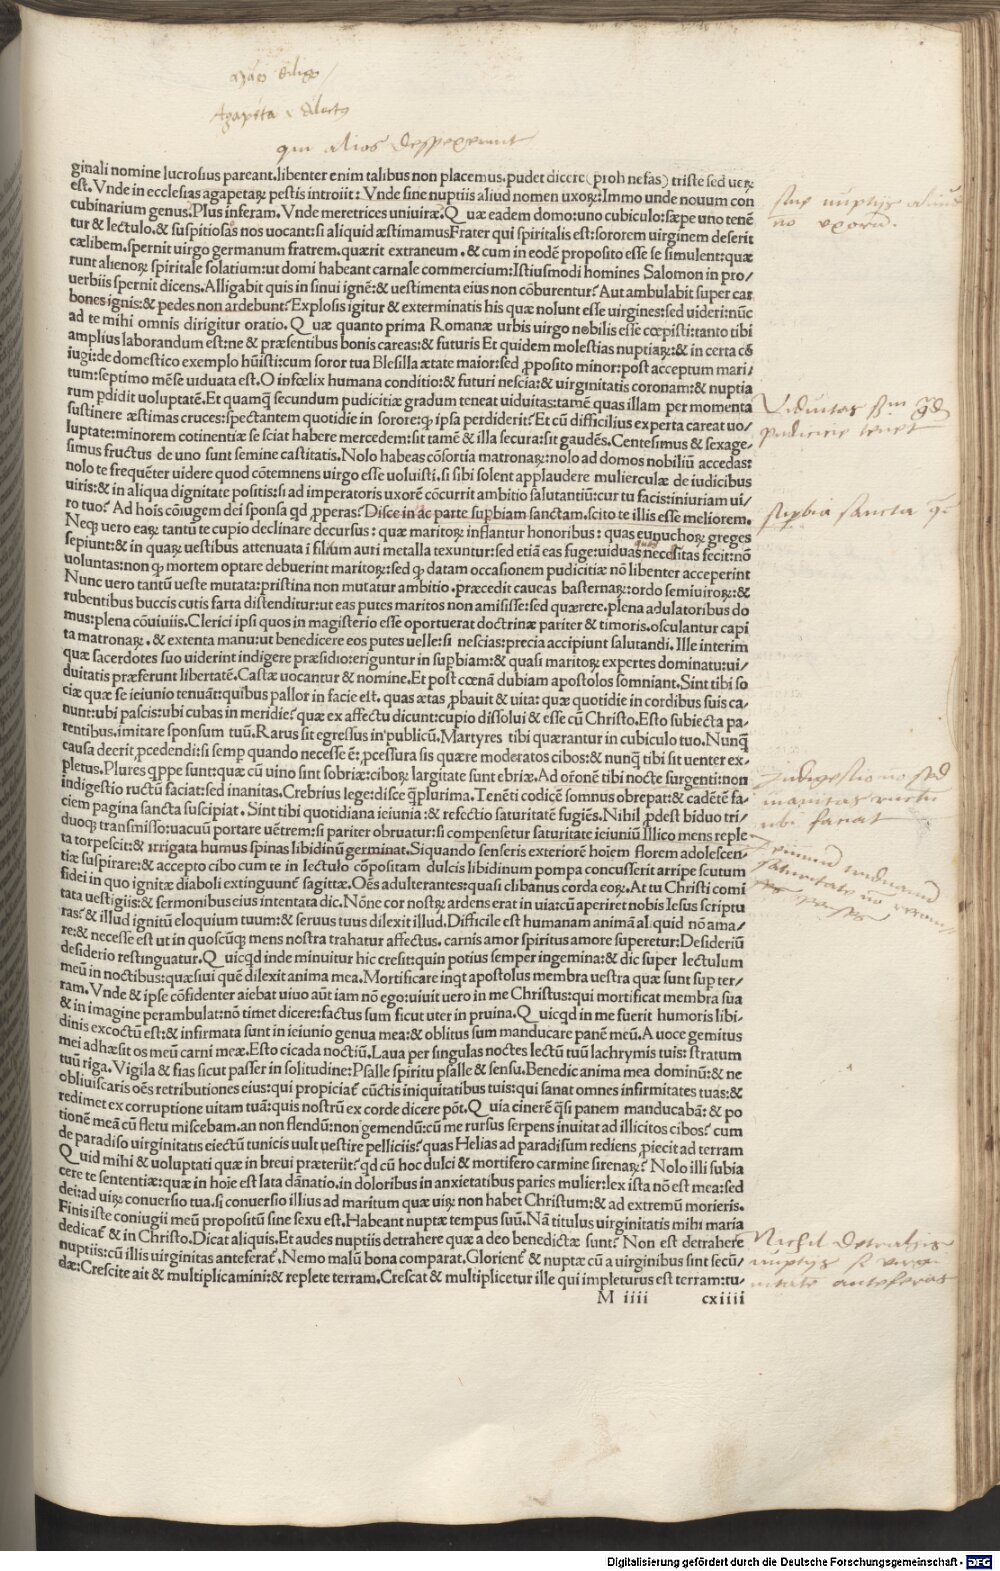 Agapeta dilectus
qui alios despexerunt
ginali nomine lucrosius pareant.libenter enim talibus non placemus.pudet dicere(ꝓh nefas) triste sed ueꝝ
est.Vnde in ecclesias agapetaꝝ pestis introiit: Vnde sine nuptiis aliud nomen uxoꝝ:Immo unde nouum con
cubinarium genus.Plus inferam.Vnde meretrices uniuiræ.Quæ eadem domo:uno cubiculo:sæpe uno tenē
tur & lectulo.& suspitiosas nos uocant:si aliquid æstimamus Frater qui spiritalis est:sororem uirginem deserit
cælibem.spernit uirgo germanum fratrem.quærit extraneum.& cum in eodē proposito esse se simulent:quæ
runt alienoꝝ spiritale solatium:ut domi habeant carnale commercium:Istiusmodi homines Salomon in pro/
uerbiis spernit dicens.Alligabit quis in sinui ignē:& uestimenta eius non cōburentur? Aut ambulabit super car
bones ignis:& pedes non ardebunt? Explosis igitur & exterminatis his quæ nolunt esse uirgines:sed uideri:nūc
ad te mihi omnis dirigitur oratio.Quæ quanto prima Romanæ urbis uirgo nobilis esse cœpisti:tanto tibi
amplius laborandum est:ne & præsentibus bonis careas:& futuris Et quidem molestias nuptiaꝝ:& in certa cō
iugi:de domestico exemplo hūisti:cum soror tua Blesilla ætate maior:sed ꝓposito minor:post acceptum mari/
tum:septimo mēse uiduata est.O infœlix humana conditio:& futuri nescia:& uirginitatis coronam:& nuptia
rum ꝑdidit uoluptatē.Et quamꝗ secundum pudicitiæ gradum teneat uiduitas:tamē quas illam per momenta
sustinere æstimas cruces:spectantem quotidie in sorore:qꝫ ipsa perdiderit? Et cū difficilius experta careat uo/
luptate:minorem cotinentiæ se sciat habere mercedem:sit tamē & illa secura:sit gaudēs.Centesimus & sexage/
simus fructus de uno sunt semine castitatis.Nolo habeas cōsortia matronaꝝ:nolo ad domos nobiliū accedas:
nolo te frequēter uidere quod cōtemnens uirgo esse uoluisti.si sibi solent applaudere mulierculæ de iudicibus
uiris:& in aliqua dignitate positis:si ad imperatoris uxorē cōcurrit ambitio salutantiū:cur tu facis:iniuriam ui/
ro tuo? Ad hoīs cōiugem dei sponsa qd ꝓperas? Disce in ac parte suꝑbiam sanctam.scito te illis esse meliorem.
Neqꝫ uero eaꝝ tantū te cupio declinare decursus: quæ maritoꝝ inflantur honoribus: quas eunuchoꝝ greges
sepiunt:& in quaꝝ uestibus attenuata i filium auri metalla texuntur:sed etiā eas fuge:uiduas necesitas fecit:nō
uoluntas:non qꝫ mortem optare debuerint maritoꝝ:sed qꝫ datam occasionem pudicitiæ nō libenter acceperint
Nunc uero tantū ueste mutata:pristina non mutatur ambitio.præcedit caueas basternaꝝ:ordo semiuiroꝝ:&
rubentibus buccis cutis farta distenditur:ut eas putes maritos non amisisse:sed quærere.plena adulatoribus do
mus:plena cōuiuiis.Clerici ipsi quos in magisterio esse oportuerat doctrinæ pariter & timoris.osculantur capi
ta matronaꝝ.& extenta manu:ut benedicere eos putes uelle:si nescias:precia accipiunt salutandi.Ille interim
quæ sacerdotes suo uiderint indigere præsidio:eriguntur in suꝑbiam:& quasi maritoꝝ expertes dominatu:ui/
duitatis præferunt libertatē.Castæ uocantur & nomine.Et post cœnā dubiam apostolos somniant.Sint tibi so
ciæ quæ se ieiunio tenuāt:quibus pallor in facie est. quas ætas ꝓbauit & uita: quæ quotidie in cordibus suis ca-
nunt:ubi pascis:ubi cubas in meridie? quæ ex affectu dicunt:cupio dissolui & esse cū Christo.Esto subiecta pa-
rentibus.imitare sponsum tuū.Rarus sit egressus in publicū.Martyres tibi quærantur in cubiculo tuo.Nunꝗ̄
causa deerit ꝓcedendi:si semꝑ quando necesse ē:ꝓcessura sis quære moderatos cibos:& nunꝗ̄ tibi sit uenter ex-
pletus.Plures qꝑpe sunt:quæ cū uino sint sobriæ:ciboꝝ largitate sunt ebriæ.Ad oŕonē tibi nocte surgenti:non
indigestio ructū faciat:sed inanitas.Crebrius lege:disce ꝗplurima.Tenēti codicē somnus obrepat:& cadētē fa-
ciem pagina sancta suscipiat. Sint tibi quotidiana ieiunia:& refectio saturitatē fugiēs.Nihil ꝓdest biduo tri/
duoqꝫ transmisso:uacuū portare uētrem:si pariter obruatur:si compensetur saturitate ieiuniū.Illico mens reple
ta torpescit:& irrigata humus spinas libidinū germinat.Siquando senseris exteriorē hoiem florem adolescen-
tiæ suspirare:& accepto cibo cum te in lectulo cōpositam dulcis libidinum pompa concusserit arripe scutum
fidei in quo ignitæ diaboli extinguunt̄ sagittæ.Oēs adulterantes:quasi clibanus corda eoꝝ.At tu Christi comi
tata uestigiis:& sermonibus eius intentata dic.Nōne cor nostꝝ ardens erat in uia:cū aperiret nobis Iesus scriptu
ras? & illud ignitū eloquium tuum:& seruus tuus dilexit illud.Difficile est humanam animā al quid nō ama/
re:& necesse est ut in quoscūqꝫ mens nostra trahatur affectus. carnis amor spiritus amore superetur:Desideriū
desiderio restinguatur.Quicqd inde minuitur hic cresit:quin potius semper ingemina:& dic super lectulum
meū in noctibus:quæsiui quē dilexit anima mea.Mortificare inqt apostolus membra uestra quæ sunt suꝑ ter/
ram.Vnde & ipse cōfidenter aiebat uiuo aūt iam nō ego:uiuit uero in me Christus:qui mortificat membra sua
& in imagine perambulat:nō timet dicere:factus sum ficut uter in pruina.Quicqd in me fuerit humoris libi-
dinis excoctū est:& infirmata sunt in ieiunio genua mea:& oblitus sum manducare panē meū.A uoce gemitus
mei adhæsit os meū carni meæ.Esto cicada noctiū.Laua per singulas noctes lectū tuū lachrymis tuis:stratum
tuū riga.Vigila & fias sicut passer in solitudine:Psalle spiritu psalle & sensu.Benedic anima mea dominū:& ne
obliuiscaris oēs retributiones eius:qui propiciat̄ cūctis iniquitatibus tuis:qui sanat omnes infirmitates tuas:&
redimet ex corruptione uitam tuā:quis nostrū ex corde dicere pōt.Quia cinerē qͥsi panem manducabā:& po
tionē meā cū fletu miscebam.an non flendū:non gemendū:cū me rursus serpens inuitat ad illicitos cibos? cum
de paradiso uirginitatis eiectū tunicis uult uestire pelliciis? quas Helias ad paradisum rediens ꝓiecit ad terram
Quid mihi & uoluptati quæ in breui præteriit? qd cū hoc dulci & mortifero carmine sirenaꝝ? Nolo illi subia
cere te sententiæ:quæ in hoīe est lata dānatio.in doloribus in anxietatibus paries mulier:lex ista nō est mea:sed
dei:ad uiꝝ conuersio tua.si conuersio illius ad maritum quæ uiꝝ non habet Christum:& ad extremū morieris.
Finis iste coniugii meū propositū sine sexu est.Habeant nuptæ tempus suū.Nā titulus uirginitatis mihi maria
dedicat̄ & in Christo.Dicat aliquis.Et audes nuptiis detrahere quæ a deo benedictæ sunt? Non est detrahere
nuptiis:cū illis uirginitas anteferat̄.Nemo malū bona comparat.Glorient̄ & nuptæ cū a uirginibus sint secū/
dæ:Crescite ait & multiplicamini:& replete terram.Crescat & multiplicetur ille qui impleturus est terram:tu/
M iiii cxiiii
sine nuptiis aliud
nō uxorū.
Viduitas
pudicicie tenet
supbia sancta
Indigestio nō sed
inanitas ructū
tibi faciat
Nichil detrahis
nuptiis si virgi-
nitate anteferas
Digitalisierung gefördert durch die Deutsche Forschungsgemeinschaft - DFG